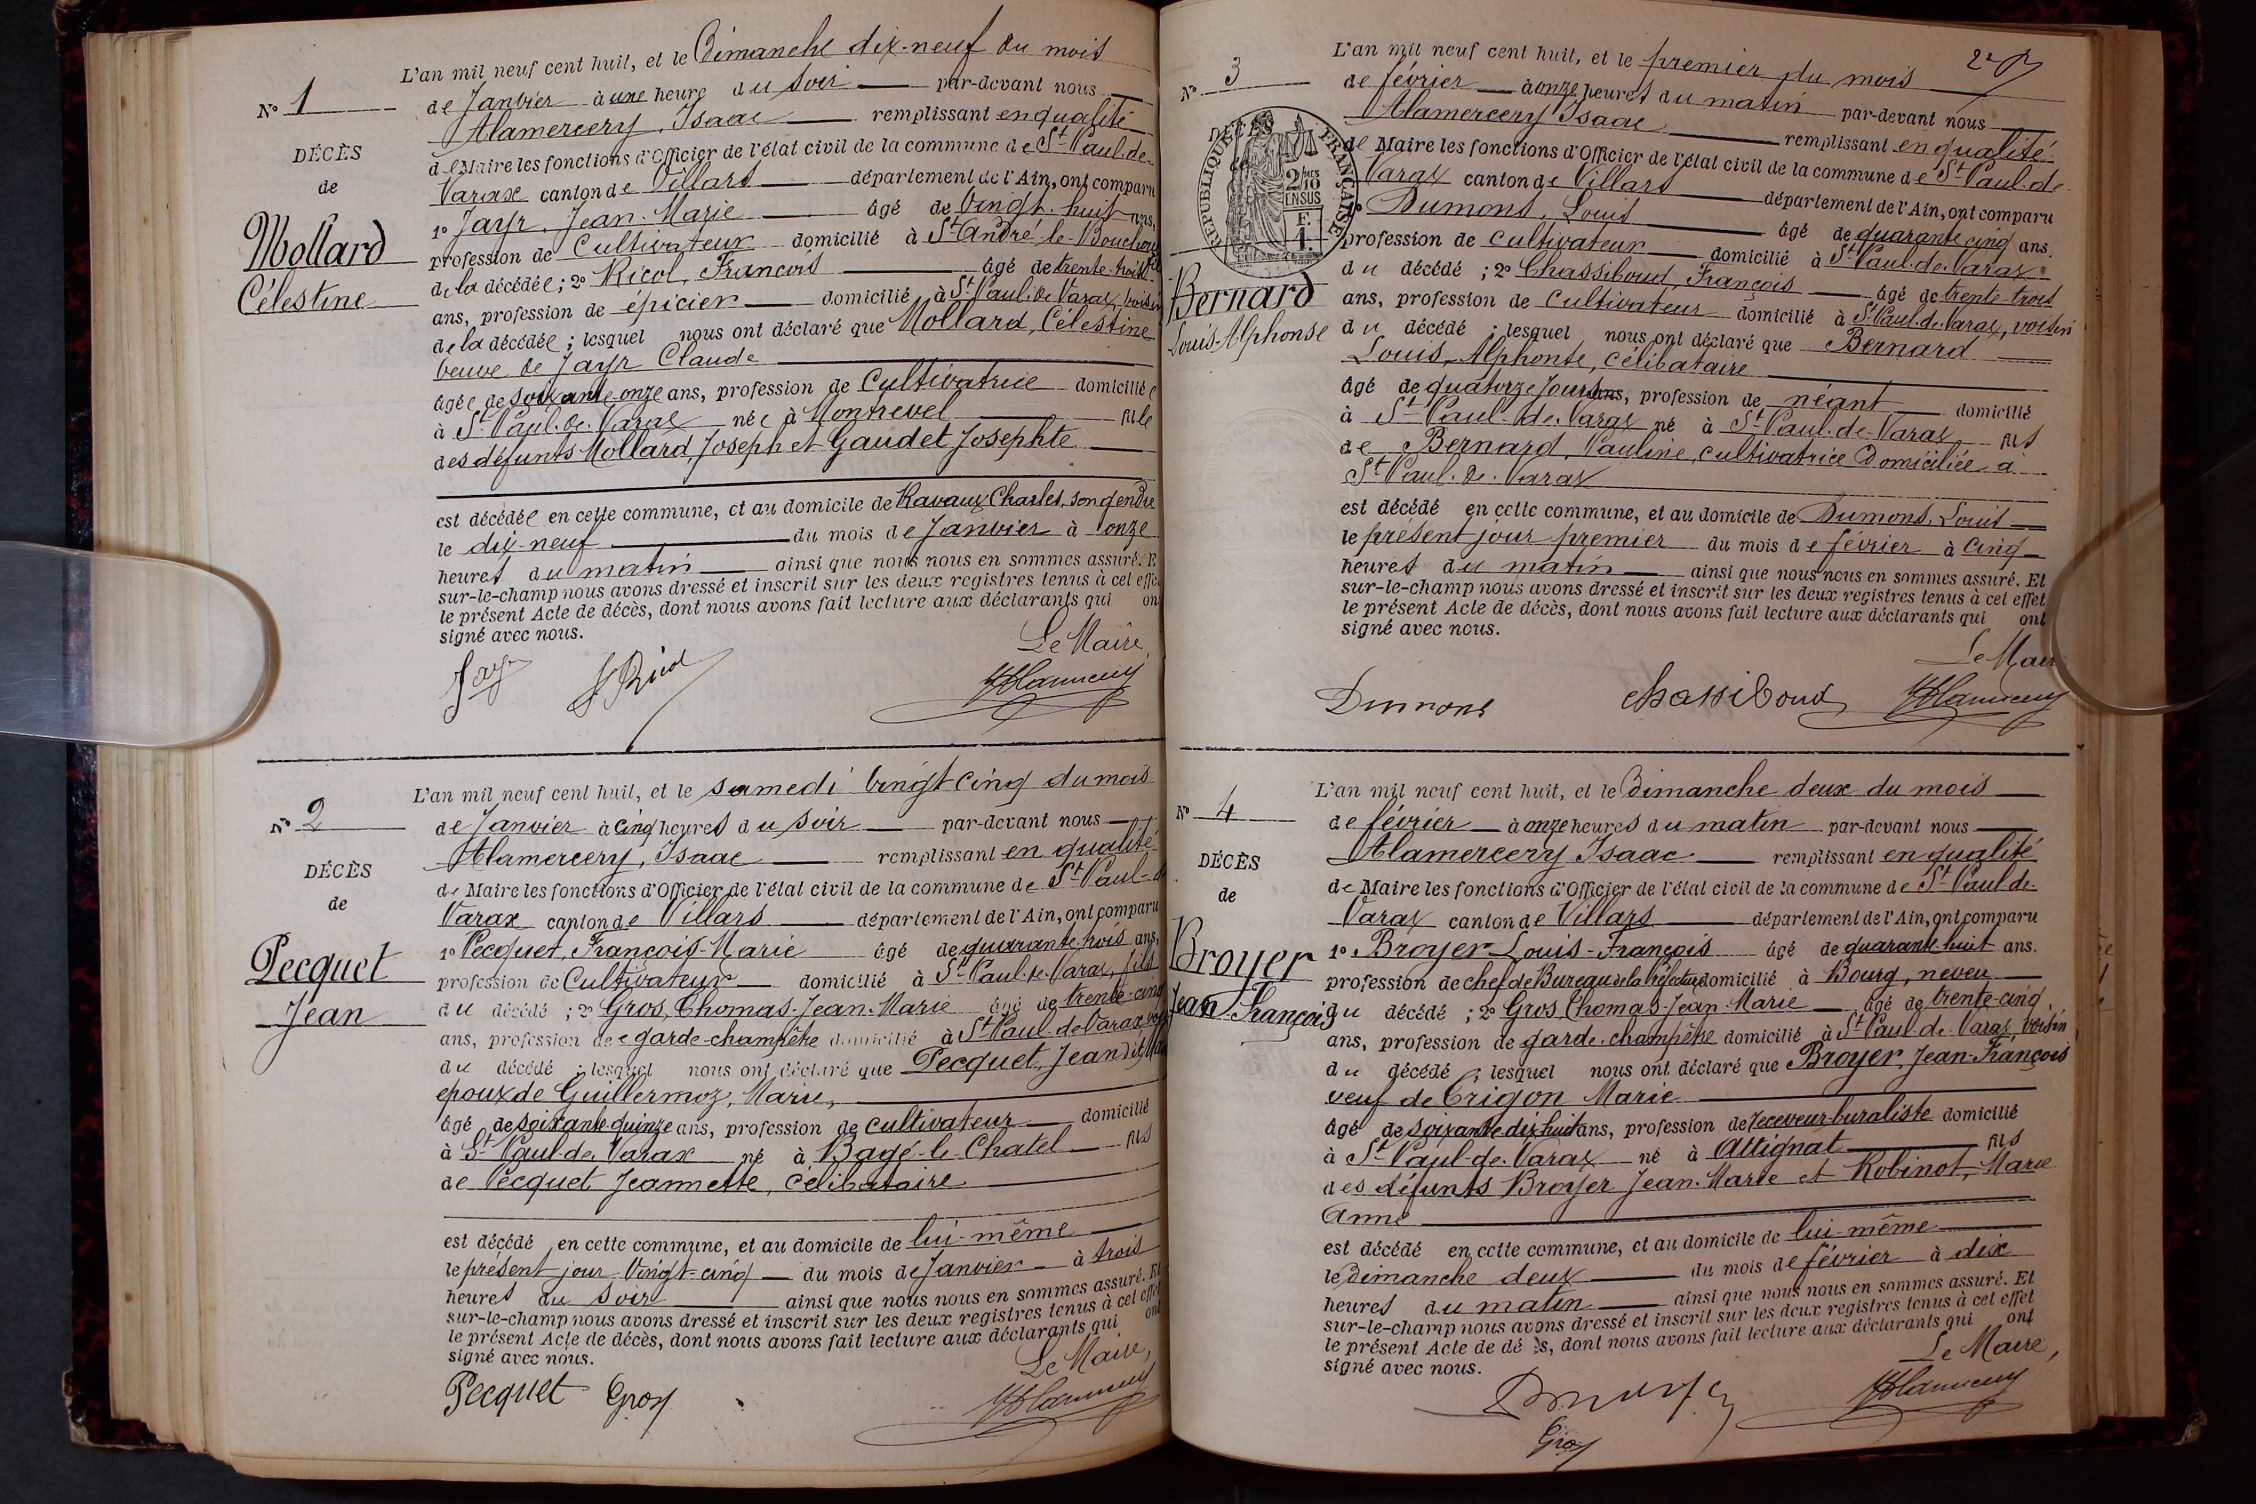 L'an mil neuf cent huit, et le Dimanche dix-neuf du mois
N° 1
de Janvier à une heure du soir par-devant nous
Alamercery, Isaac remplissant en qualité
DÉCÈS
de Maire les fonctions d'Officier de l'état civil de la commune de St Paul-de-
de
Varax canton de Villars département de l'Ain, ont comparu
1° Jayr, Jean-Marie âgé de vingt-huit ans,
Mollard
profession de Cultivateur domicilié à St André-le-Bouchoux
Célestine
de la décédée; 2° Ricol, François âgé de trente-huit
ans, profession de épicier domicilié à St Paul-de-Varax, voisin
de la décédée; lesquel nous ont déclaré que Mollard, Célestine
veuve de Jayr Claude
âgée de soixante-onze ans, profession de Cultivatrice domiciliée
à St Paul-de-Varax née à Montrevel fille
des défunts Mollard Joseph et Gaudet Josephte
est décédée en cette commune, et au domicile de Ravaux Charles, son gendre
le dix-neuf du mois de Janvier à onze
heures du matin ainsi que nous nous en sommes assuré. E
sur-le-champ nous avons dressé et inscrit sur les deux registres tenus à cet effe
le présent Acte de décès, dont nous avons fait lecture aux déclarants qui on
signé avec nous.
Le Maire,
Jayr
Ricol
L'an mil neuf cent huit, et le samedi vingt-cinq du mois
N° 2
de Janvier à cinq heures du soir par-devant nous
Alamercery, Isaac remplissant en qualité
DÉCÈS
de Maire les fonctions d'Officier de l'état civil de la commune de St Paul-de
de
Varax canton de Villars département de l'Ain, ont comparu
1° Pecquet, François-Marie âgé de quarante-trois ans,
Pecquet
profession de Cultivateur domicilié à St Paul-de-Varax, fils
Jean
du décédé; 2° Gros, Thomas-Jean-Marie âgé de trente-cinq
ans, profession de garde-champêtre domicilié à St Paul-de-Varax
du décédé; lesquel nous ont déclaré que Pecquet, Jean dit
époux de Guillermoz, Marie,
âgé de soixante-quinze ans, profession de cultivateur domicilié
à St Paul-de-Varax né à Bagé-le-Chatel fils
de Pecquet Jeannette, célibataire
est décédé en cette commune, et au domicile de lui-même
le présent jour vingt-cinq du mois de Janvier à trois
heures du soir ainsi que nous nous en sommes assuré. Et
sur-le-champ nous avons dressé et inscrit sur les deux registres tenus à cet effet
le présent Acte de décès, dont nous avons fait lecture aux déclarants qui ont
signé avec nous.
Le Maire,
Pecquet Gros
L'an mil neuf cent huit, et le premier du mois
N° 3
de février à onze heures du matin par-devant nous
Alamercery Isaac remplissant en qualité
DÉCÈS
RÉPUBLIQUE FRANÇAISE
2/10 EN SUS
F. 1.
de Maire les fonctions d'Officier de l'état civil de la commune de St Paul-de-
Varax canton de Villars département de l'Ain, ont comparu
1° Dumons, Louis âgé de quarante cinq ans.
profession de cultivateur domicilié à St Paul-de-Varax
Bernard
Louis-Alphonse
du décédé; 2° Chassiboud, François âgé de trente-trois
ans, profession de Cultivateur domicilié à St Paul-de-Varax, voisin
du décédé; lesquel nous ont déclaré que Bernard
Louis, Alphonse, célibataire
âgé de quatorze jours ans, profession de néant domicilié
à St Paul-de-Varax né à St Paul-de-Varax fils
de Bernard, Pauline, cultivatrice domiciliée à
St Paul-de-Varax
est décédé en cette commune, et au domicile de Dumons, Louis
le présent jour premier du mois de février à cinq
heures du matin ainsi que nous nous en sommes assuré. Et
sur-le-champ nous avons dressé et inscrit sur les deux registres tenus à cet effet
le présent Acte de décès, dont nous avons fait lecture aux déclarants qui ont
signé avec nous.
Le Maire
Dumons Chassiboud
L'an mil neuf cent huit, et le Dimanche deux du mois
N° 4
de février à onze heures du matin par-devant nous
Alamercery Isaac remplissant en qualité
DÉCÈS
de Maire les fonctions d'Officier de l'état civil de la commune de St Paul-de-
de
Varax canton de Villars département de l'Ain, ont comparu
1° Broyer Louis-François âgé de quarante-huit ans.
Broyer
profession de chef de Bureau de la Préfecture domicilié à Bourg, neveu
Jean François
du décédé; 2° Gros Thomas-Jean-Marie âgé de trente-cinq
ans, profession de garde-champêtre domicilié à St Paul-de-Varax, voisin
du décédé; lesquel nous ont déclaré que Broyer, Jean-François
veuf de Trigon Marie
âgé de soixante-dix-huit ans, profession de receveur-buraliste domicilié
à St Paul-de-Varax né à Attignat fils
des défunts Broyer Jean-Marie et Robinot, Marie
Anne
est décédé en cette commune, et au domicile de lui-même
le Dimanche deux du mois de février à dix
heures du matin ainsi que nous nous en sommes assuré. Et
sur-le-champ nous avons dressé et inscrit sur les deux registres tenus à cet effet
le présent Acte de décès, dont nous avons fait lecture aux déclarants qui ont
signé avec nous.
Le Maire,
Gros